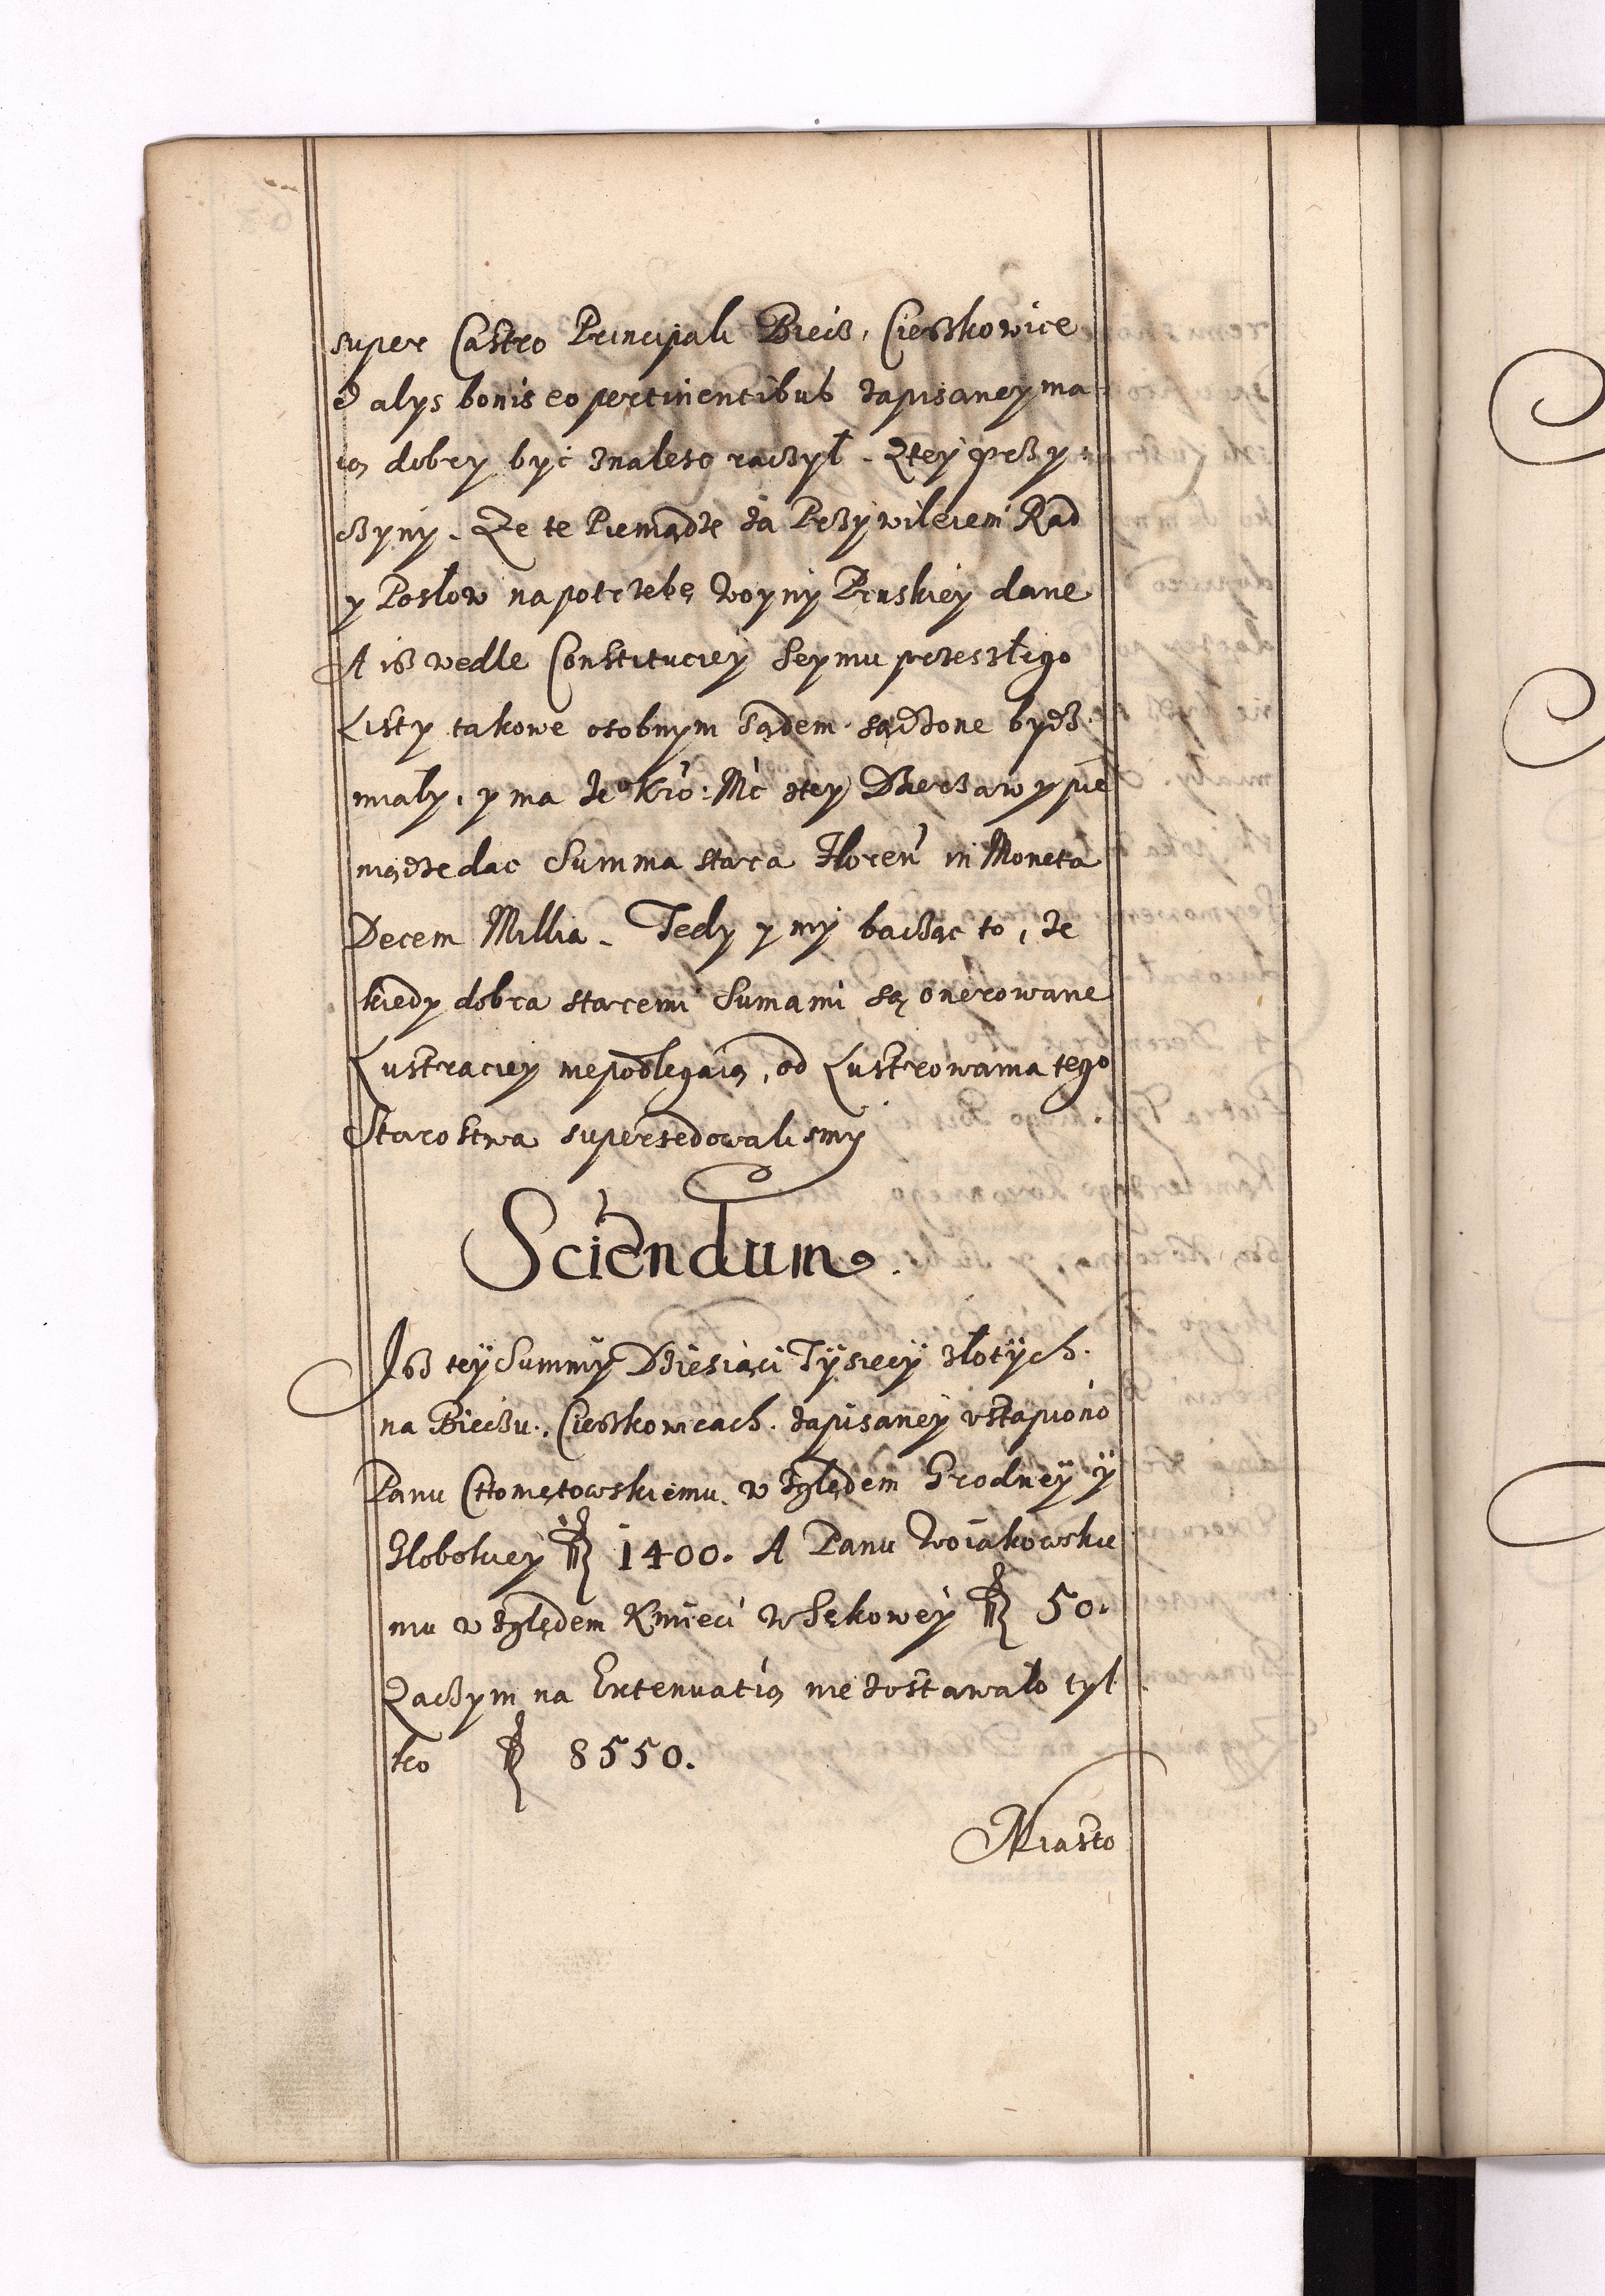 super Castro Principali Biecz, Ciesskowice
et alys bonis eo pertinentibus zapisaney ma
ią dobry być znaleso raczył. Ztey przy
czyny. Ze te Pieniądze za Przywileiem Rad
y Posłow na potrzebę Woyny Pruskiey dane
A isz wedle Constituciey Seymu przeszłego
Listy takowe osobnym sądem sądzone bydz
miały, y ma Jeo Kro: Mc ztey Dzierzawy pie
niądze dac Summa stara Floren in Moneta
Decem Millia. Tedy y my bacząc to, ze
kiedy dobra staremi Sumami są onerowane
Lustraciey niepodlegaią, od Lustrowania tego
Starostwa supersedowalismy
Sciendum.
Isz tey Summy Dziesiąci Tysięcy złotych
na Bieczu. Cieszkowicach. zapisaney vstąpiono
Panu Chomętowskiemu. względem Grodney y
Globokiey f 1400. A Panu Woiakowskie
mu względem Kmieci w Sękowey f 50.
Zaczym na Extenuatią niedostawało tyl
ko f 8550.
Miasto